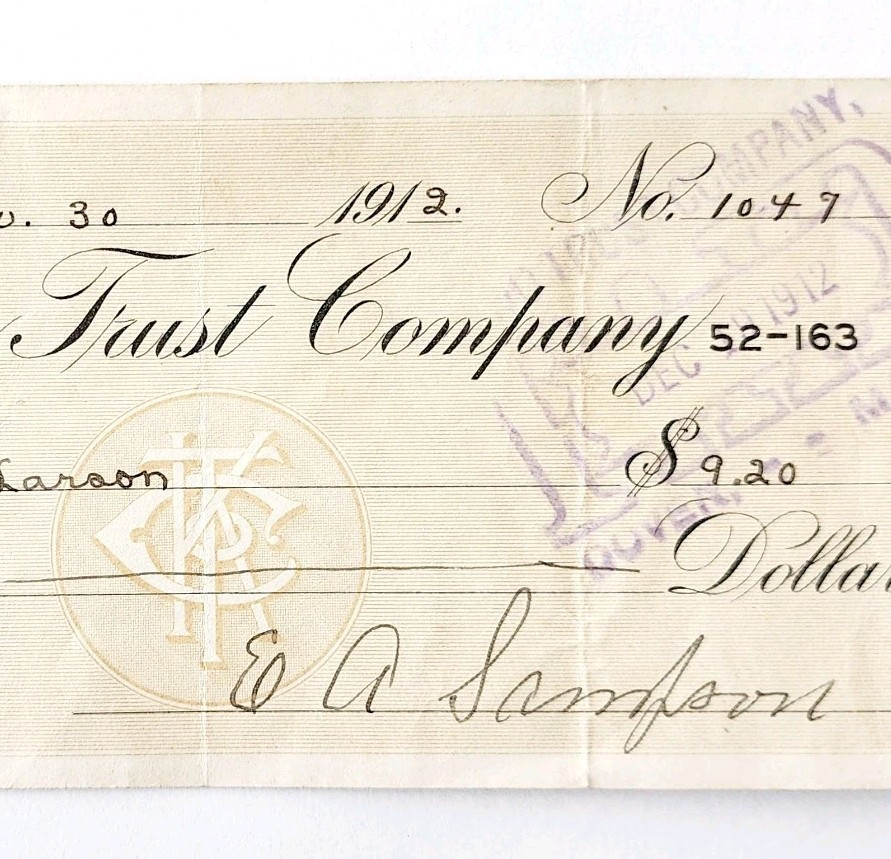 30 1912. No. 1047
Trust Company 52-163
Larson $9.20
Dollar
E A Sampson
COMPANY,
DEC 1912
DOVER,
M